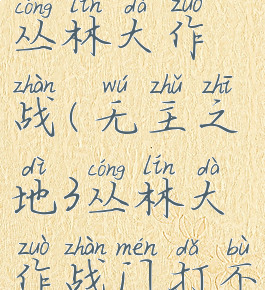 cóng lín dà zuò
丛林大作
zhàn wú zhǔ zhī
战(无主之
dì cóng lín dà
地3丛林大
zuò zhàn mén dǎ bù
作战门打不